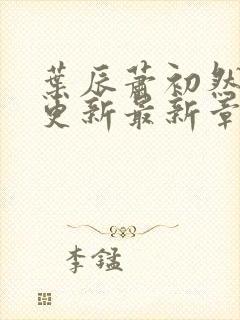 葉辰蕭初然
更新最新章
李錳